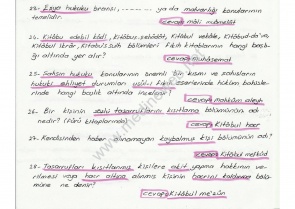 23- Eşya hukuku branşı, ......... ya da malvarlığı konularının
temelidir.
cevap) mâli mübadelât
24- Kitâbu edebil kâdî, Kitâbus şehâdât, Kitâbul vekâle, Kitâbud-da'vâ,
Kitâbul ikrâr, Kitabu's sulh bölümleri fıkıh kitaplarının hangi başlı-
ğı altında yer alır?
cevap) muhâsemat
25- Şahsın hukuku konularının önemli bir kısmı ve şahısların
hukuki ehliyet durumları usûl-i fıkıh eserlerinde hüküm bahisle-
rinde hangi başlık altında incelenir?
cevap) mahkûm aleyh
26- Bir kişinin sözlü tasarruflarını kısıtlama bölümünün adı
nedir? (Fürû kitaplarında)
cevap) Kitâbül hacr
27- Kendisinden haber alınamayan kaybolmuş kişi bölümünün adı?
cevap) Kitâbül mefkûd
28- Tasarrufları kısıtlanmış kişilere akit yapma hakkının ve-
rilmesi veya hacr altına alınmış kişinin hacrini kaldırma bölü-
müne ne denir?
cevap) Kitâbül me'zûn